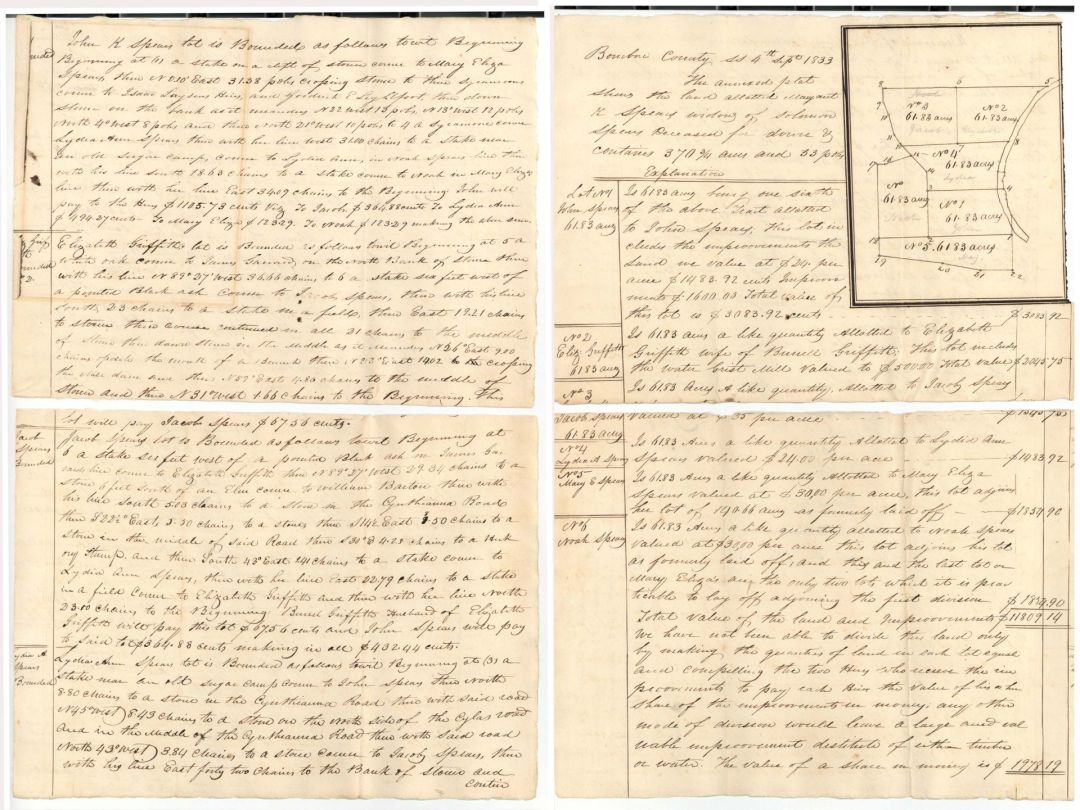 John K Spears lot is Bounded as follows towit Beginning
Beginning at (1) a stake on a clift of stoner corner to Mary Eliza
Spears, then N 20° East 31.38 poles crossing Stoner to three sycamores
corner to Isaac and down
stoner on the bank as it meanders N 22 West 13 poles, N 18° West 12 poles
North 4° West 8 poles and then North 21° West 10 poles to 4 a Sycamore corner
Lydia Ann Spears then with her line West 32.00 chains to a Stake near
an old sugar camp, corner to Lydia Ann, in Noah Spears line then
with his line South 18.63 chains to a stake corner to Noah in Mary Eliza's
line then with her line East 34.09 chains to the Beginning John will
pay to the Heirs $1105.73 cents Viz. To Jacob $364.88 cents To Lydia Ann
$494.27 cents To Mary Eliza $123.29. To Noah $123.29 making the above sum.
Bounded
Elizabeth Griffiths lot is Bounded as follows towit Beginning at 5 a
White oak corner to James Garrard, on the North Bank of Stoner then
with his line N 89° 27' West 36.66 chains to 6 a stake six feet west of
a pointed Black ash corner to Jacob Spears, then with his line
South 23 chains to a stake in a field, then East 19.21 chains
to stoner thence course continued in all 21 chains to the middle
of Stoner then down stoner in the middle as it meanders N 26° East 9.00
chains opposite the mouth of a branch then N 23° East 14.02 crossing
the Mill dam and then N 59° East 4.80 chains to the middle of
Stoner and then N 31° West 1.66 chains to the Beginning. This
lot will pay Jacob Spears $67.56 cents.
Jacob Spears Bounded
Jacob Spears lot is Bounded as follows towit Beginning at
6 a Stake six feet west of a pointed Black ash in James Gar
rards line corner to Elizabeth Griffith then N 89° 27' West 29.34 chains to a
stone 6 feet South of an Elm corner to William Barton then with
his line South 5.03 chains to a Stone in the Cynthianna Road
then S 22½° East 5.50 chains to a stone, then S 14½ East 3.50 chains to a
stone in the middle of said Road then S 30° E 4.28 chains to a Hick
ory Stump, and then South 43° East 1.41 chains to a stake corner to
Lydia Ann Spears, then with her line East 22.79 chains to a Stake
in a field Corner to Elizabeth Griffith and then with her line North
23.00 chains to the Beginning Burrel Griffith Husband of Elizabeth
Griffith will pay this lot $67.56 cents and John Spears will pay
to said lot $364.88 cents making in all $432.44 cents.
Lydia A Spears Bounded
Lydia Ann Spears lot is Bounded as follows towit Beginning at (3) a
Stake near an old sugar camp corner to John Spears then North
8.80 chains to a stone in the Cynthianna Road then with said road
N 45° West 8.43 chains to a Stone on the North side of the Cylas road
and in the middle of the Cynthianna Road then with said road
North 43° West 3.84 chains to a stone corner to Jacob Spears, then
with his line East forty two chains to the Bank of Stoner and
contin
Bourbon County Sct 4th Septr 1833
The annexed plat
shews the land allotted Margaret
K Spears widow of Solomon
Spears Deceased for dower &
contains 370¾ acres and 33 poles
Explanation
No 3
61.83 acres
No 2
61.83 acres
No 4
61.83 acres
No
61.83 acres
No 1
61.83 acres
No 5. 61.83 acres
Lot No 1
John Spears
61.83 acres
Is 61.83 acres being one sixth
of the above Tract allotted
to John Spears, this lot in
cludes the improovements the
Land we value at $24. per
acre $1483.92 cents Improov
ments $1600.00 Total value of
this lot is $3083.92 cents $3083.92
No 2
Eliz. Griffith
61.83 acres
Is 61.83 acres a like quantity Allotted to Elizabeth
Griffith wife of Burrell Griffith. This lot includes
the water Grist Mill valued to $500.00 Total value $2045.75
No 3
Jacob Spears
61.83 acres
Is 61.83 Acres A like quantity, Allotted to Jacob Spears
valued at per acre
No 4
Lydia A Spears
Is 61.83 Acres a like quantity Allotted to Lydia Ann
Spears valued $24.00 per acre $1483.92
No 5
Mary E Spears
Is 61.83 Acres a like quantity Allotted to Mary Eliza
Spears valued at $30,00 per acre, this lot adjoins
her lot of acres as formerly laid off $1854.90
No 6
Noah Spears
Is 61.83 Acres a like quantity allotted to Noah Spears
valued at $30,00 per acre this lot adjoins his lot
as formerly laid off, and this and the last lot or
Mary Eliza's are the only two lots which it is prac
ticable to lay off, adjoining the first division $1854.90
Total value of the land and Improovements $11809.14
We have not been able to divide this land only
by making the quantities of land in each lot equal
and compelling the two Heirs who receive the im
proovements to pay each Heir the value of his or her
share of the improovements in money; any other
mode of division would leave a large and val
uable improovement destitute of either timber
or water. The value of a share in money is $1978.19